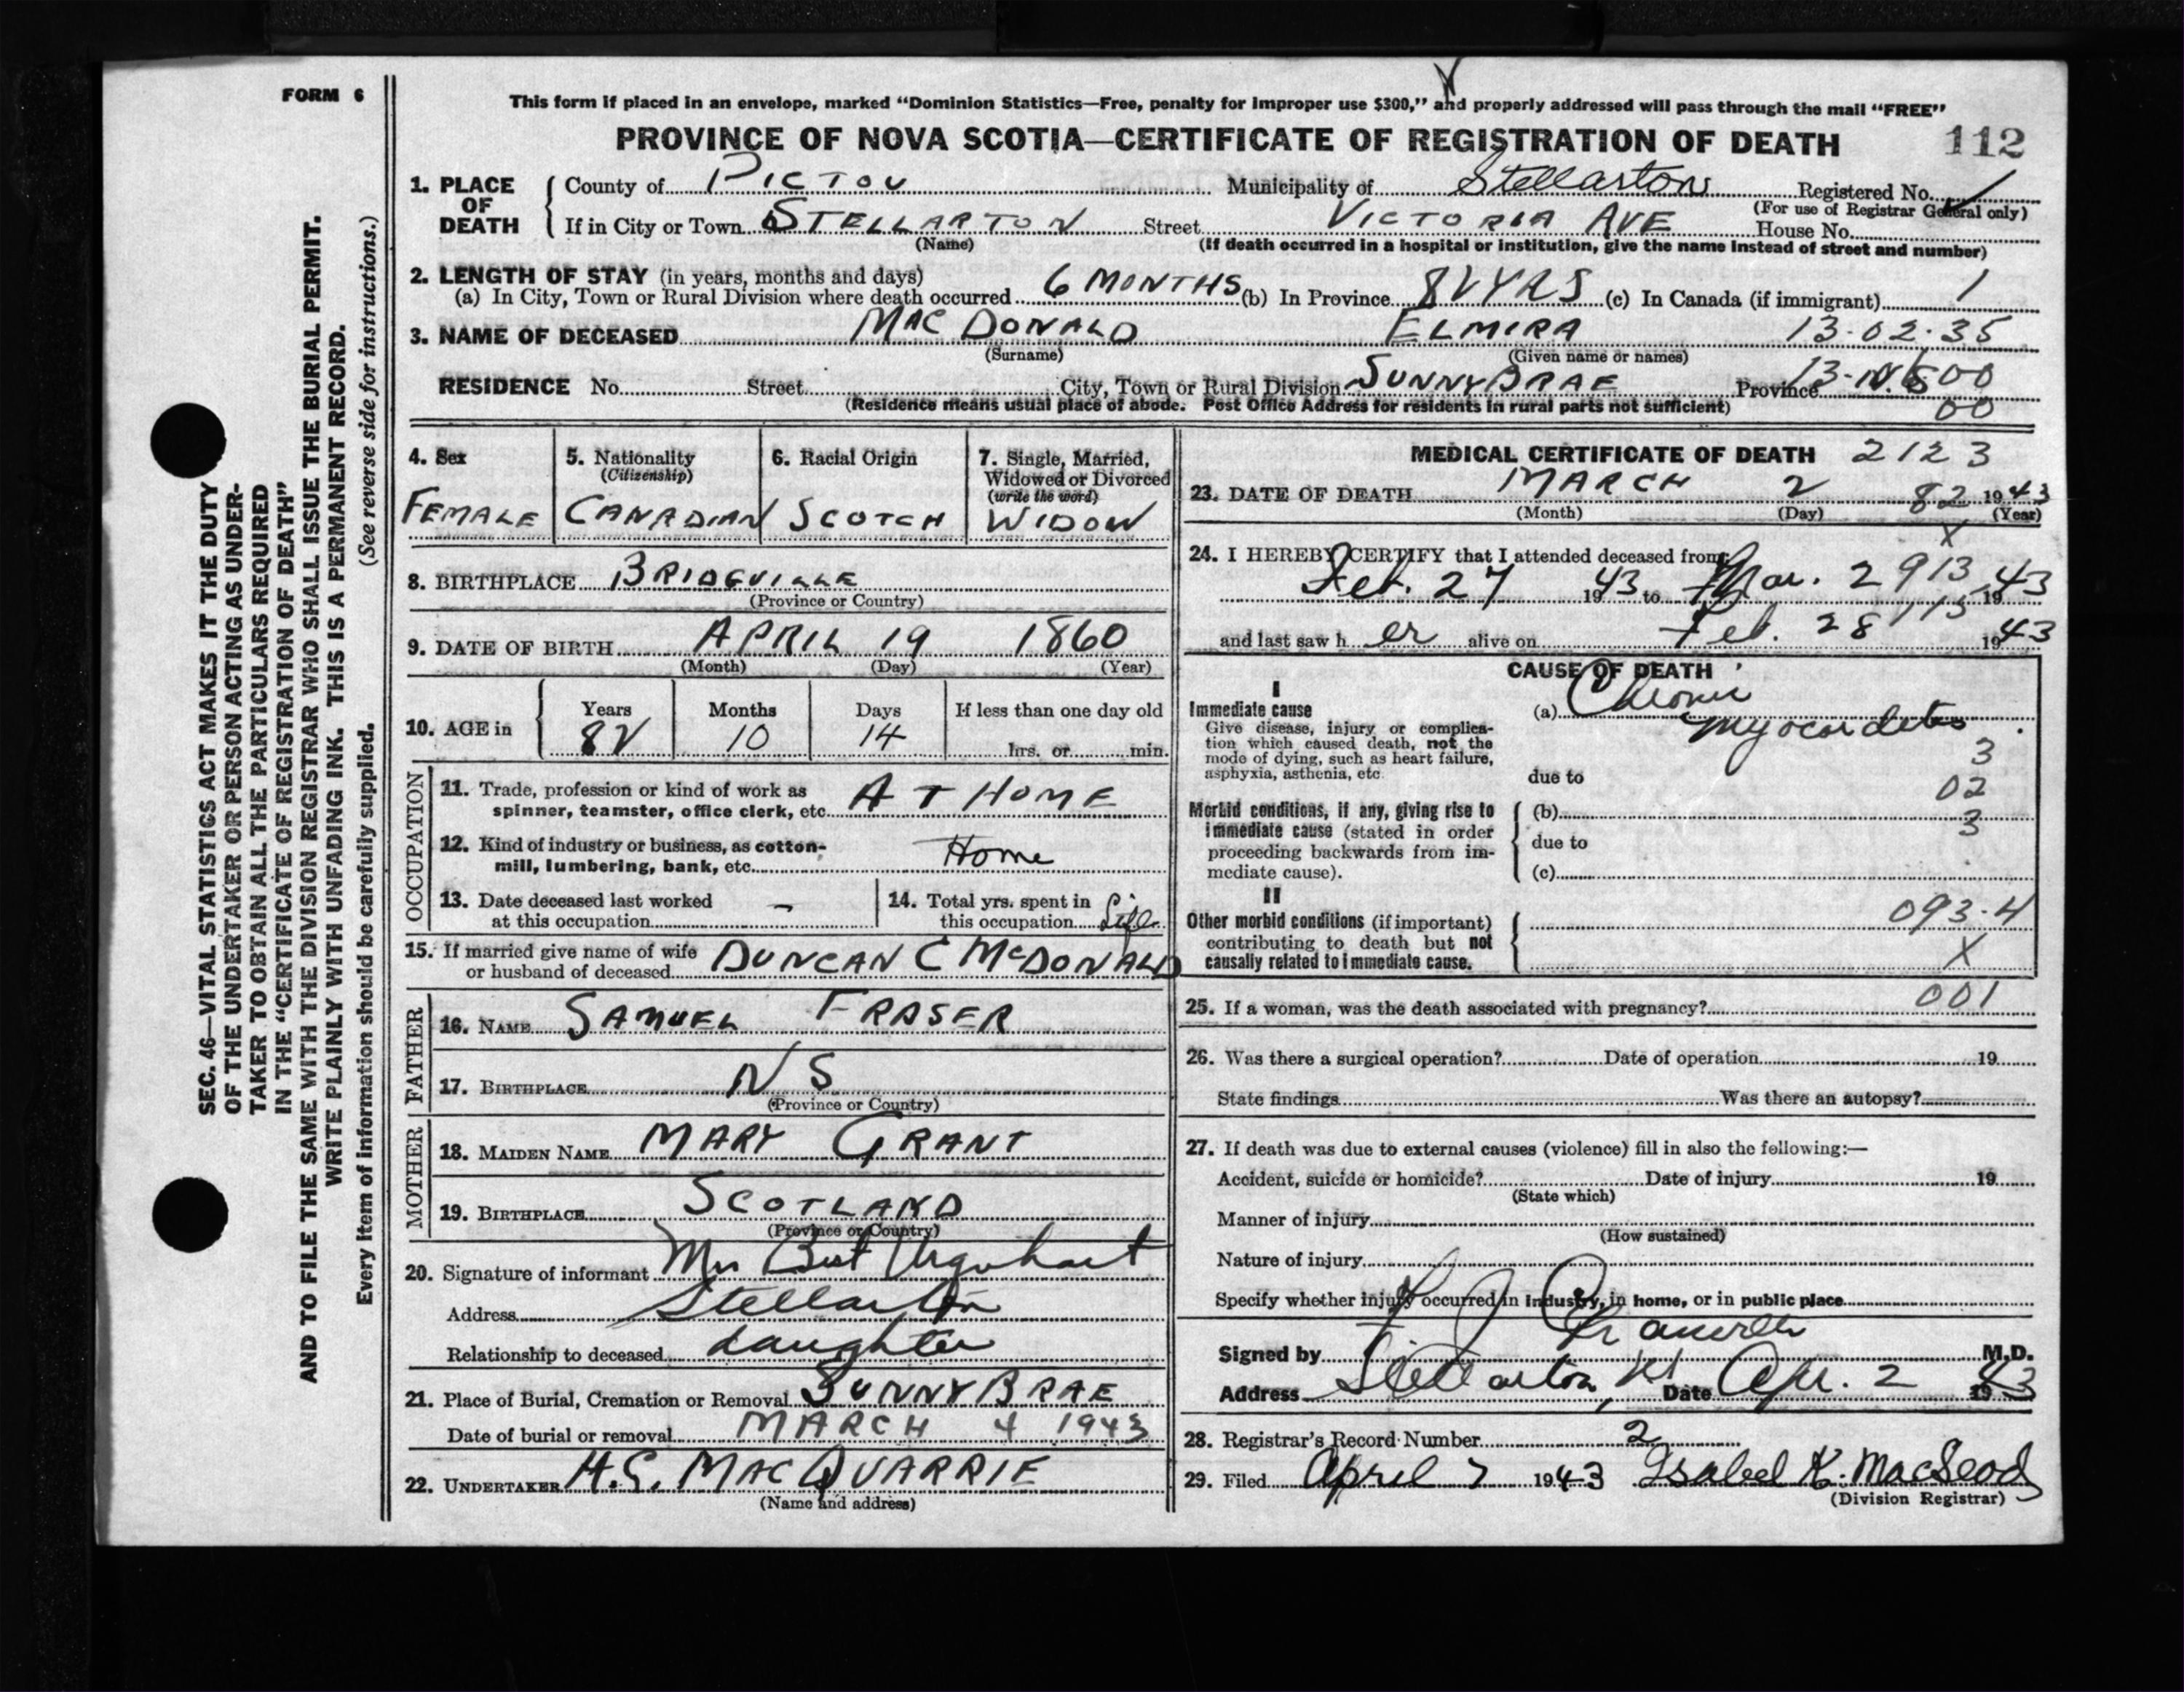 FORM 6
This form if placed in an envelope, marked "Dominion Statistics—Free, penalty for improper use $300," and properly addressed will pass through the mail "FREE"
PROVINCE OF NOVA SCOTIA—CERTIFICATE OF REGISTRATION OF DEATH 112
1. PLACE OF DEATH County of PICTOU Municipality of Stellarton Registered No.
(For use of Registrar General only)
If in City or Town STELLARTON Street VICTORIA AVE House No.
(Name) (If death occurred in a hospital or institution, give the name instead of street and number)
2. LENGTH OF STAY (in years, months and days)
(a) In City, Town or Rural Division where death occurred 6 MONTHS (b) In Province 82 YRS (c) In Canada (if immigrant) 1
3. NAME OF DECEASED MACDONALD ELMIRA 13-02-35
(Surname) (Given name or names)
RESIDENCE No. Street City, Town or Rural Division SUNNYBRAE Province
(Residence means usual place of abode. Post Office Address for residents in rural parts not sufficient) 00
4. Sex 5. Nationality (Citizenship) 6. Racial Origin 7. Single, Married, Widowed or Divorced (write the word)
FEMALE CANADIAN SCOTCH WIDOW
8. BIRTHPLACE BRIDGVILLE
(Province or Country)
9. DATE OF BIRTH APRIL 19 1860
(Month) (Day) (Year)
10. AGE in Years Months Days If less than one day old
82 10 14 hrs. or min.
OCCUPATION
11. Trade, profession or kind of work as
spinner, teamster, office clerk, etc. AT HOME
12. Kind of industry or business, as cotton-
mill, lumbering, bank, etc. Home
13. Date deceased last worked
at this occupation —
14. Total yrs. spent in
this occupation Life
15. If married give name of wife
or husband of deceased DUNCAN C McDONALD
FATHER
16. NAME SAMUEL FRASER
17. BIRTHPLACE N S
(Province or Country)
MOTHER
18. MAIDEN NAME MARY GRANT
19. BIRTHPLACE SCOTLAND
(Province or Country)
20. Signature of informant Mrs Bert Urquhart
Address Stellarton
Relationship to deceased daughter
21. Place of Burial, Cremation or Removal SUNNYBRAE
Date of burial or removal MARCH 4 1943
22. UNDERTAKER MACQUARRIE
(Name and address)
MEDICAL CERTIFICATE OF DEATH 2123
23. DATE OF DEATH MARCH 2 82 1943
(Month) (Day) (Year)
X
24. I HEREBY CERTIFY that I attended deceased from
Feb. 27 1943 to Mar. 2 913 1943
and last saw her alive on Feb. 28 113 1943
CAUSE OF DEATH
I
Immediate cause
Give disease, injury or complica-
tion which caused death, not the
mode of dying, such as heart failure,
asphyxia, asthenia, etc.
(a) Chronic
myocarditis
3
due to
02
Morbid conditions, if any, giving rise to
immediate cause (stated in order
proceeding backwards from im-
mediate cause).
(b)
3
due to
(c)
II
Other morbid conditions (if important)
contributing to death but not
causally related to immediate cause.
093-4
X
25. If a woman, was the death associated with pregnancy? 001
26. Was there a surgical operation? Date of operation 19
State findings Was there an autopsy?
27. If death was due to external causes (violence) fill in also the following:—
Accident, suicide or homicide? Date of injury 19
(State which)
Manner of injury
(How sustained)
Nature of injury
Specify whether injury occurred in industry, in home, or in public place
Signed by M.D.
Address Stellarton, Date Apr. 2 1943
28. Registrar's Record Number 2
29. Filed April 7 1943 Isabel K. MacLeod
(Division Registrar)
SEC. 46—VITAL STATISTICS ACT MAKES IT THE DUTY
OF THE UNDERTAKER OR PERSON ACTING AS UNDER-
TAKER TO OBTAIN ALL THE PARTICULARS REQUIRED
IN THE "CERTIFICATE OF REGISTRATION OF DEATH"
AND TO FILE THE SAME WITH THE DIVISION REGISTRAR WHO SHALL ISSUE THE BURIAL PERMIT.
WRITE PLAINLY WITH UNFADING INK. THIS IS A PERMANENT RECORD.
Every item of information should be carefully supplied. (See reverse side for instructions.)